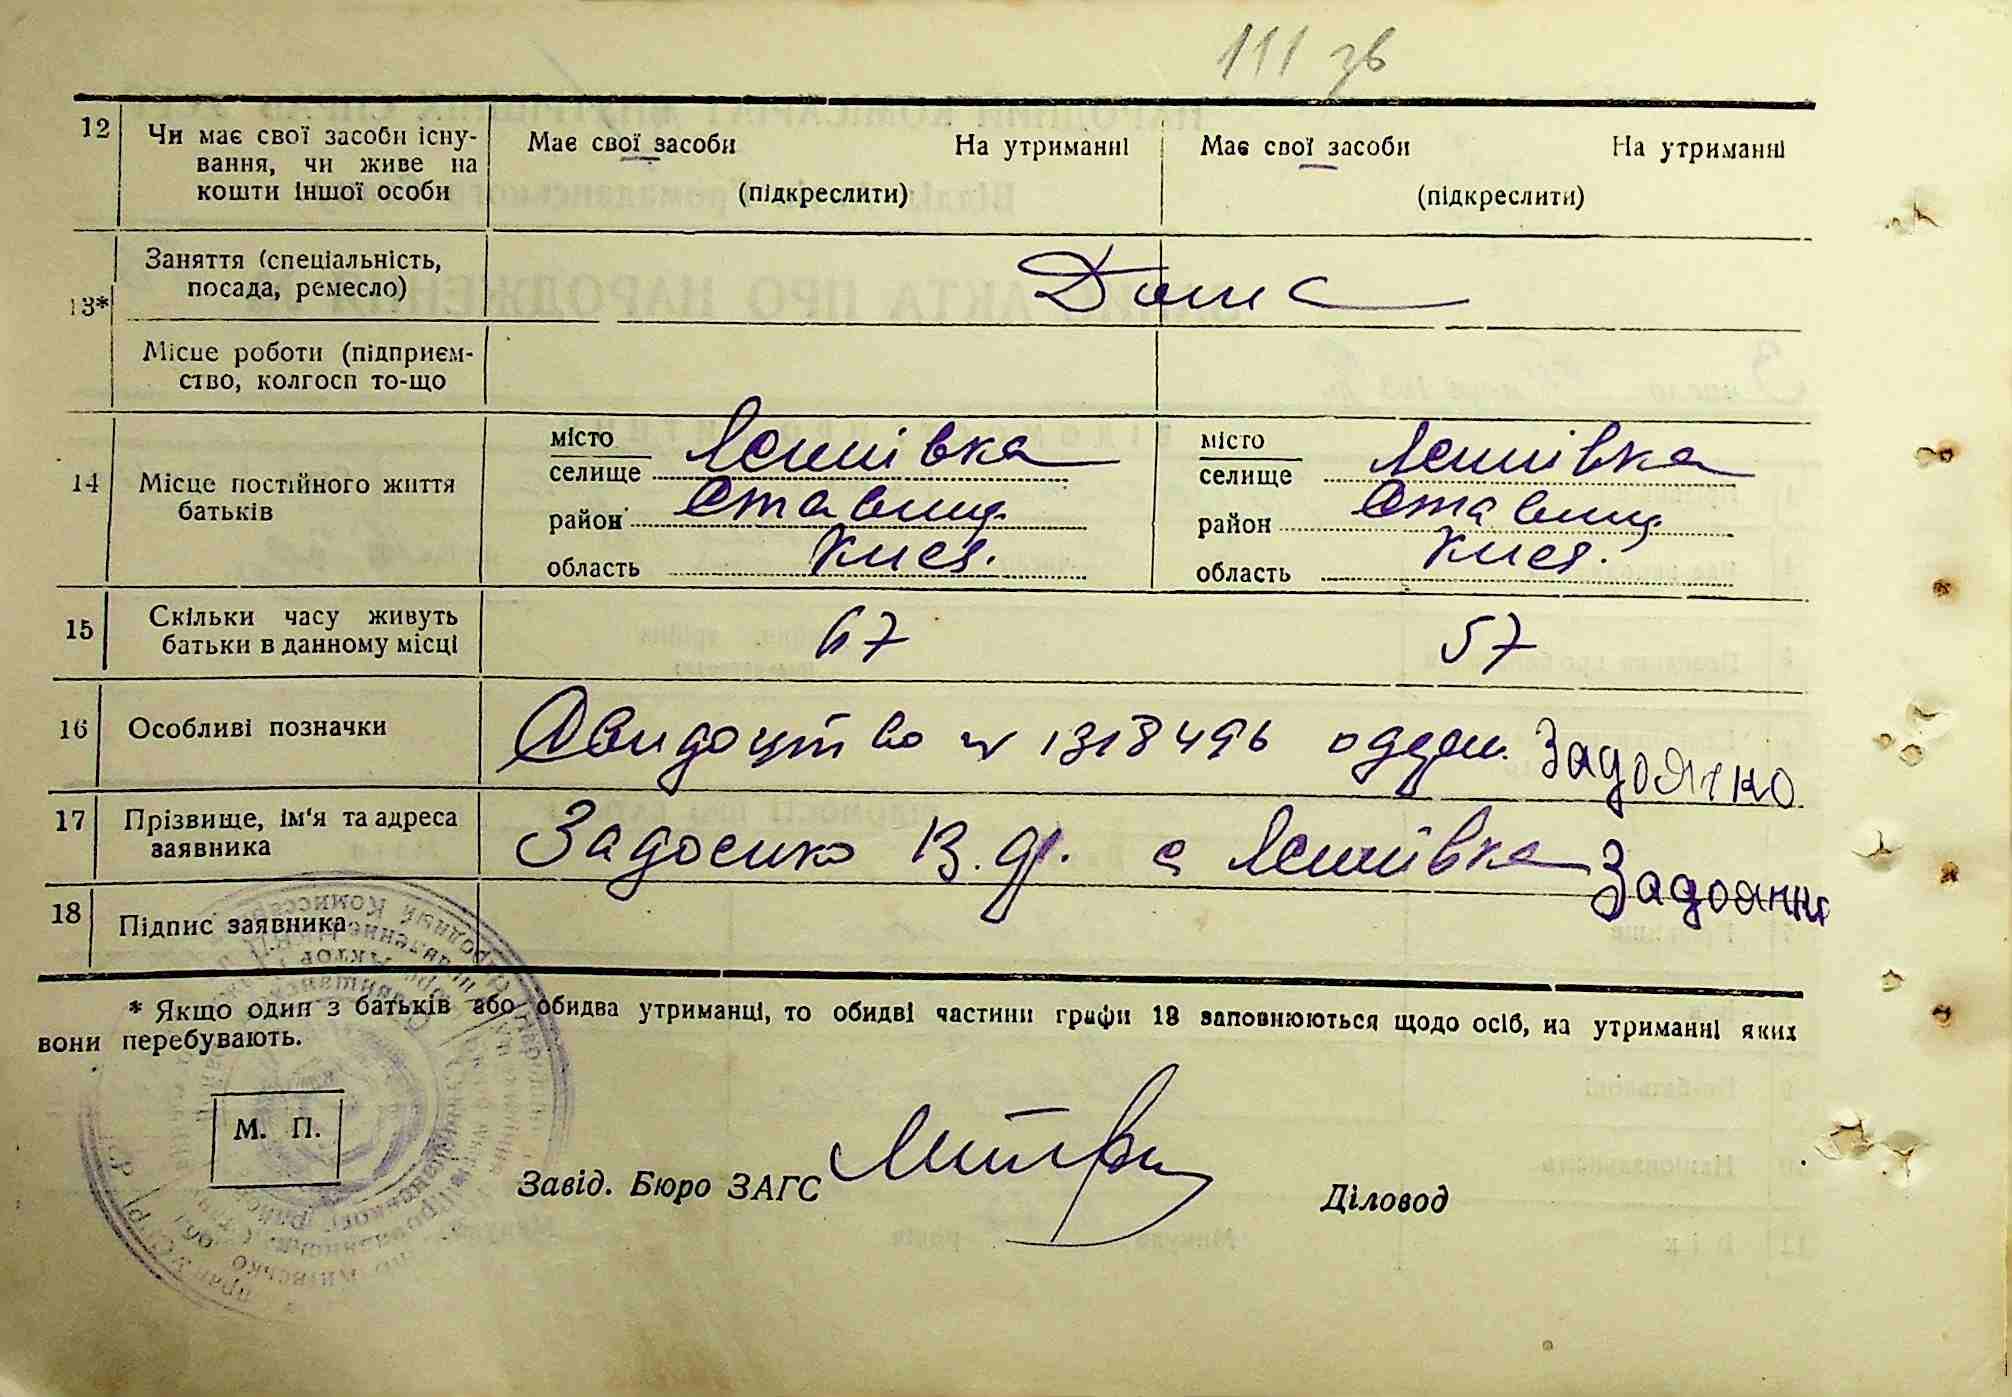 111 зв
12 Чи має свої засоби існу-
вання, чи живе на
кошти іншої особи
Має свої засоби На утриманні
(підкреслити)
Має свої засоби На утриманні
(підкреслити)
13* Заняття (спеціальність,
посада, ремесло)
Місце роботи (підприєм-
ство, колгосп то-що
14 Місце постійного життя
батьків
місто
селище
район Ставищ.
область Киев.
місто
селище
район Ставищ.
область Киев.
15 Скільки часу живуть
батьки в данному місці
67 57
16 Особливі позначки
Свидоцтво № 1318496 Задоянко
17 Прізвище, ім'я та адреса
заявника
Задоєнко В. с
18 Підпис заявника
* Якщо один з батьків або обидва утриманці, то обидві частини графи 13 заповнюються щодо осіб, на утриманні яких
вони перебувають.
М. П.
Завід. Бюро ЗАГС Діловод